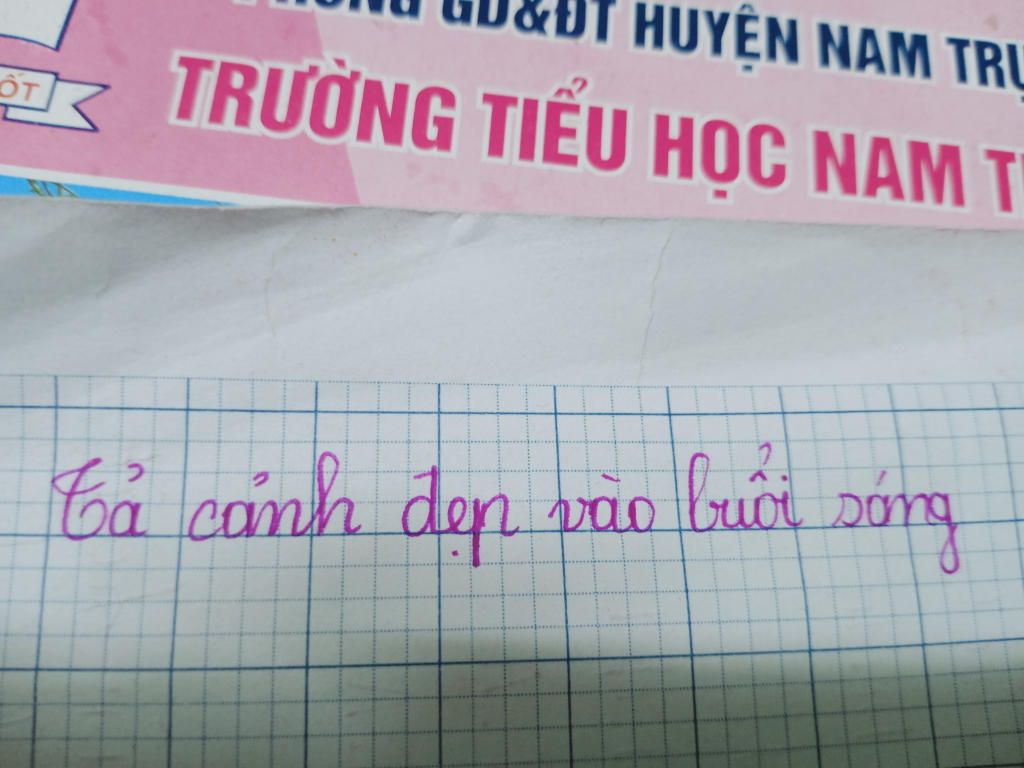 GD&ĐT HUYỆN NAM
TRƯỜNG TIỂU HỌC NAM
Tả cảnh đẹp vào buổi sáng